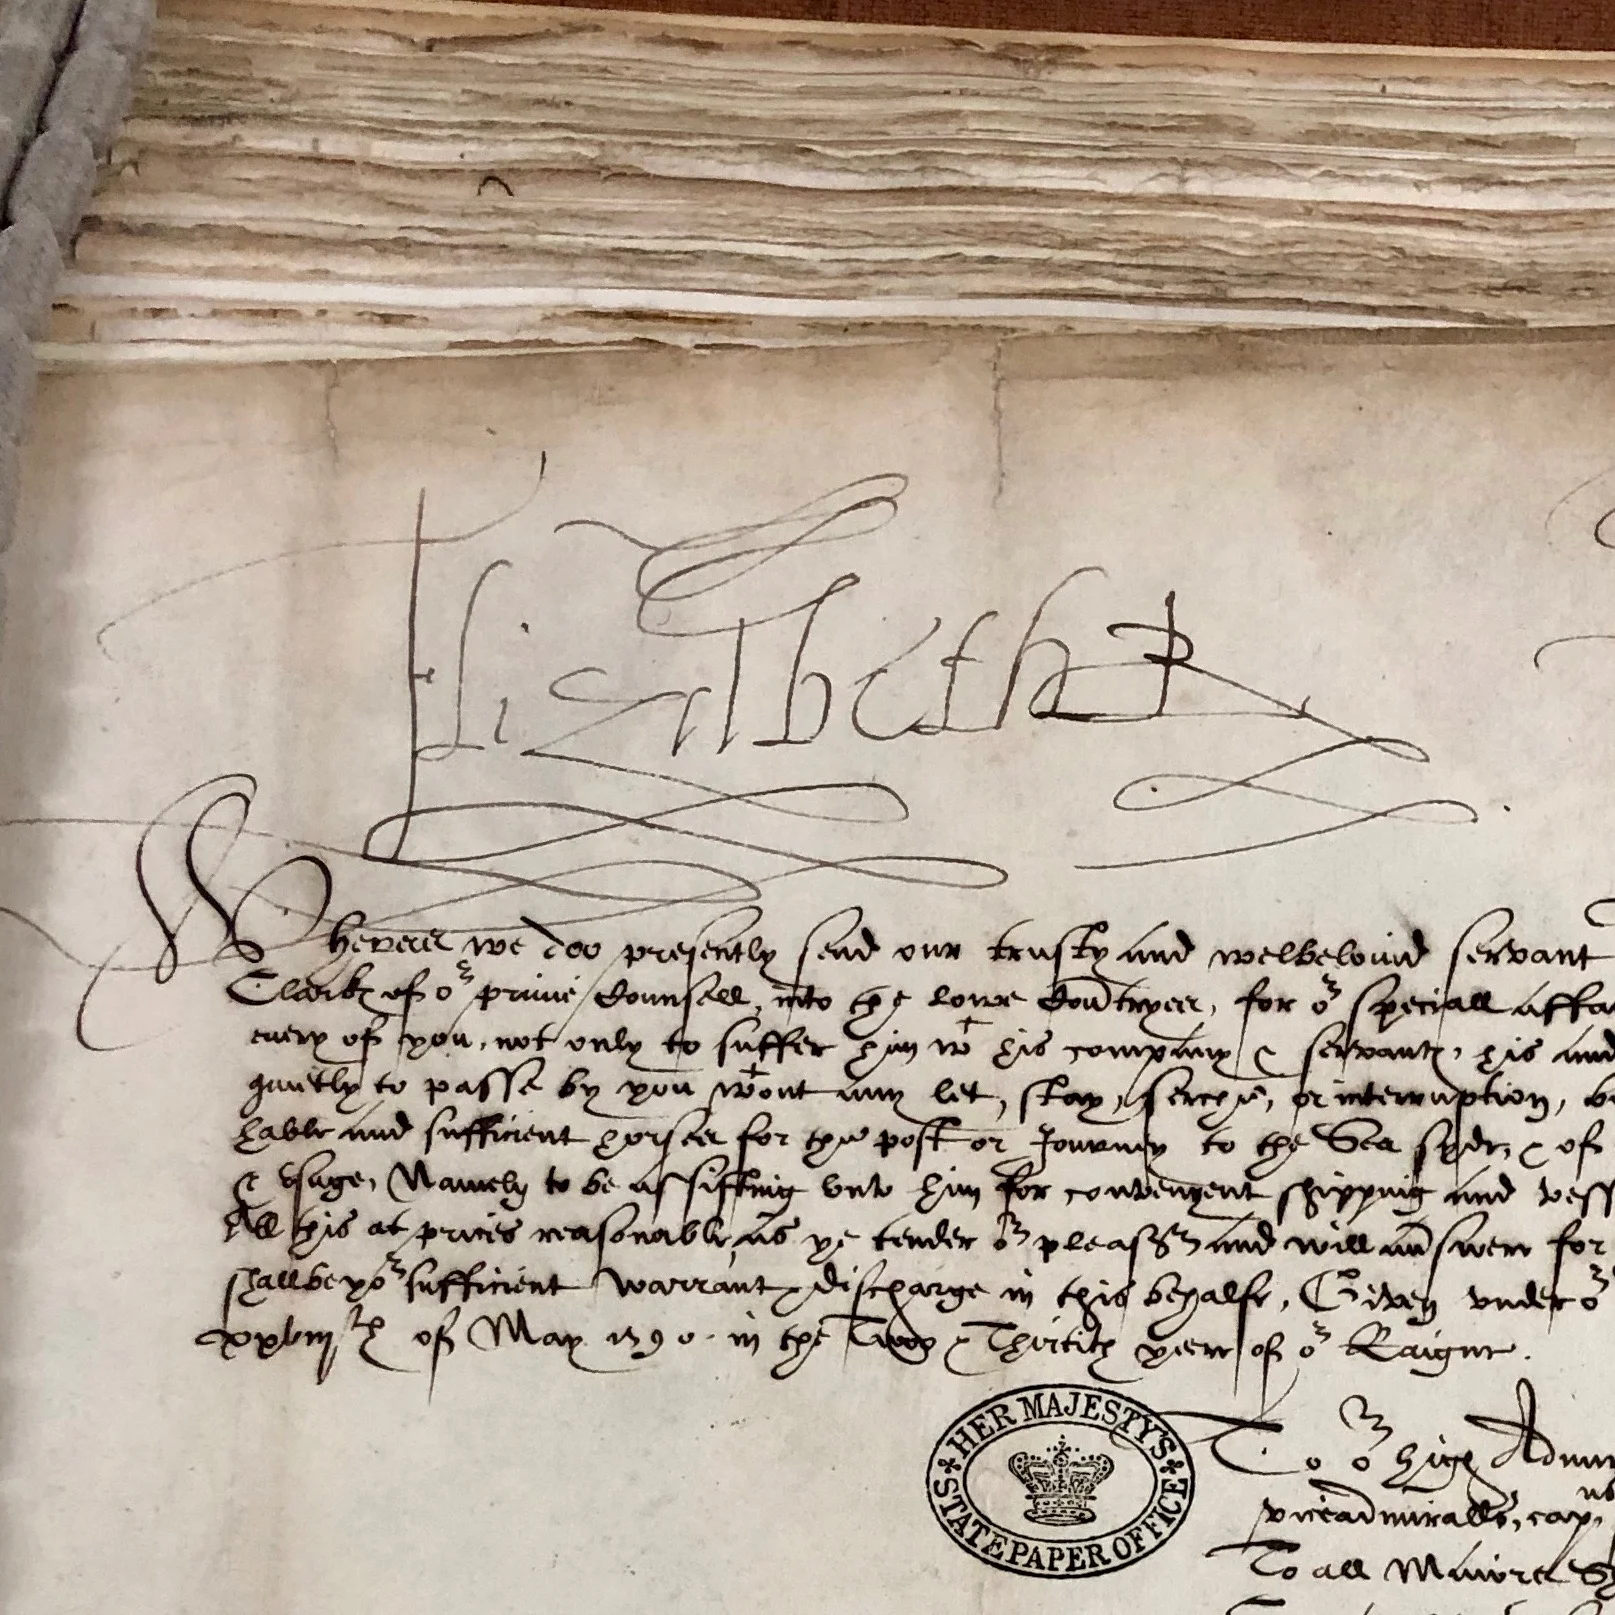 Elizabeth R
Whereas we doo presently send our trusty and welbelovid servant
Clarke of oʳ privie Counsell, into the lowe Countryes, for oʳ speciall affa
every of you, not only to suffer him wᵗ his company & servantes, his and
quietly to passe by you wᵗout any let, stay, serche, or interruption, b
hable and sufficient horses for the post or Journey to the Sea syde, & of
& usage, Namely to be assisting unto him for convenyent shipping and vess
All this at prices reasonable, as ye tender oʳ pleasʳ and will answere for
shall be yoʳ sufficient warrant & discharge in this behalfe, Given under oʳ
xxviijᵗʰ of May 1590. in the Two & Thirtith yeere of oʳ Raigne.
HER MAJESTY'S STATE PAPER OFFICE
To oʳ high Admir
viceadmiralls, cap
To all Maiors Sh